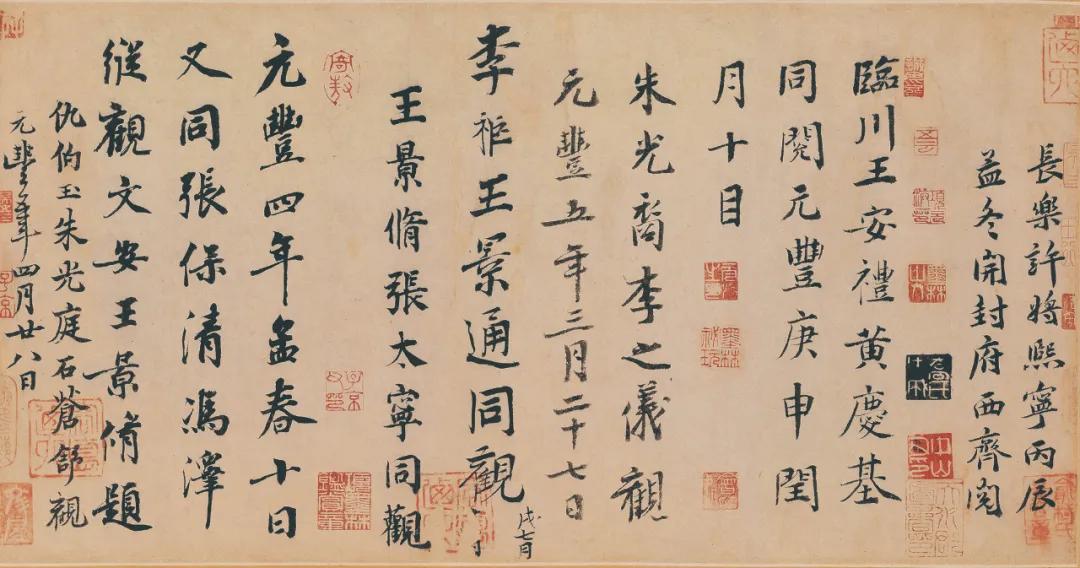 長樂許將熙寧丙辰
孟冬開封府西齊閱
臨川王安禮黃慶基
同閱元豐庚申閏
月十日
朱光裔李之儀觀
元豐五年三月二十七日
李秬王景通同觀
戊七月
王景脩張太寧同觀
元豐四年孟春十日
又同張保清馮澤
縱觀文安王景脩題
仇伯玉朱光庭石蒼舒觀
元豐年四月廿八日